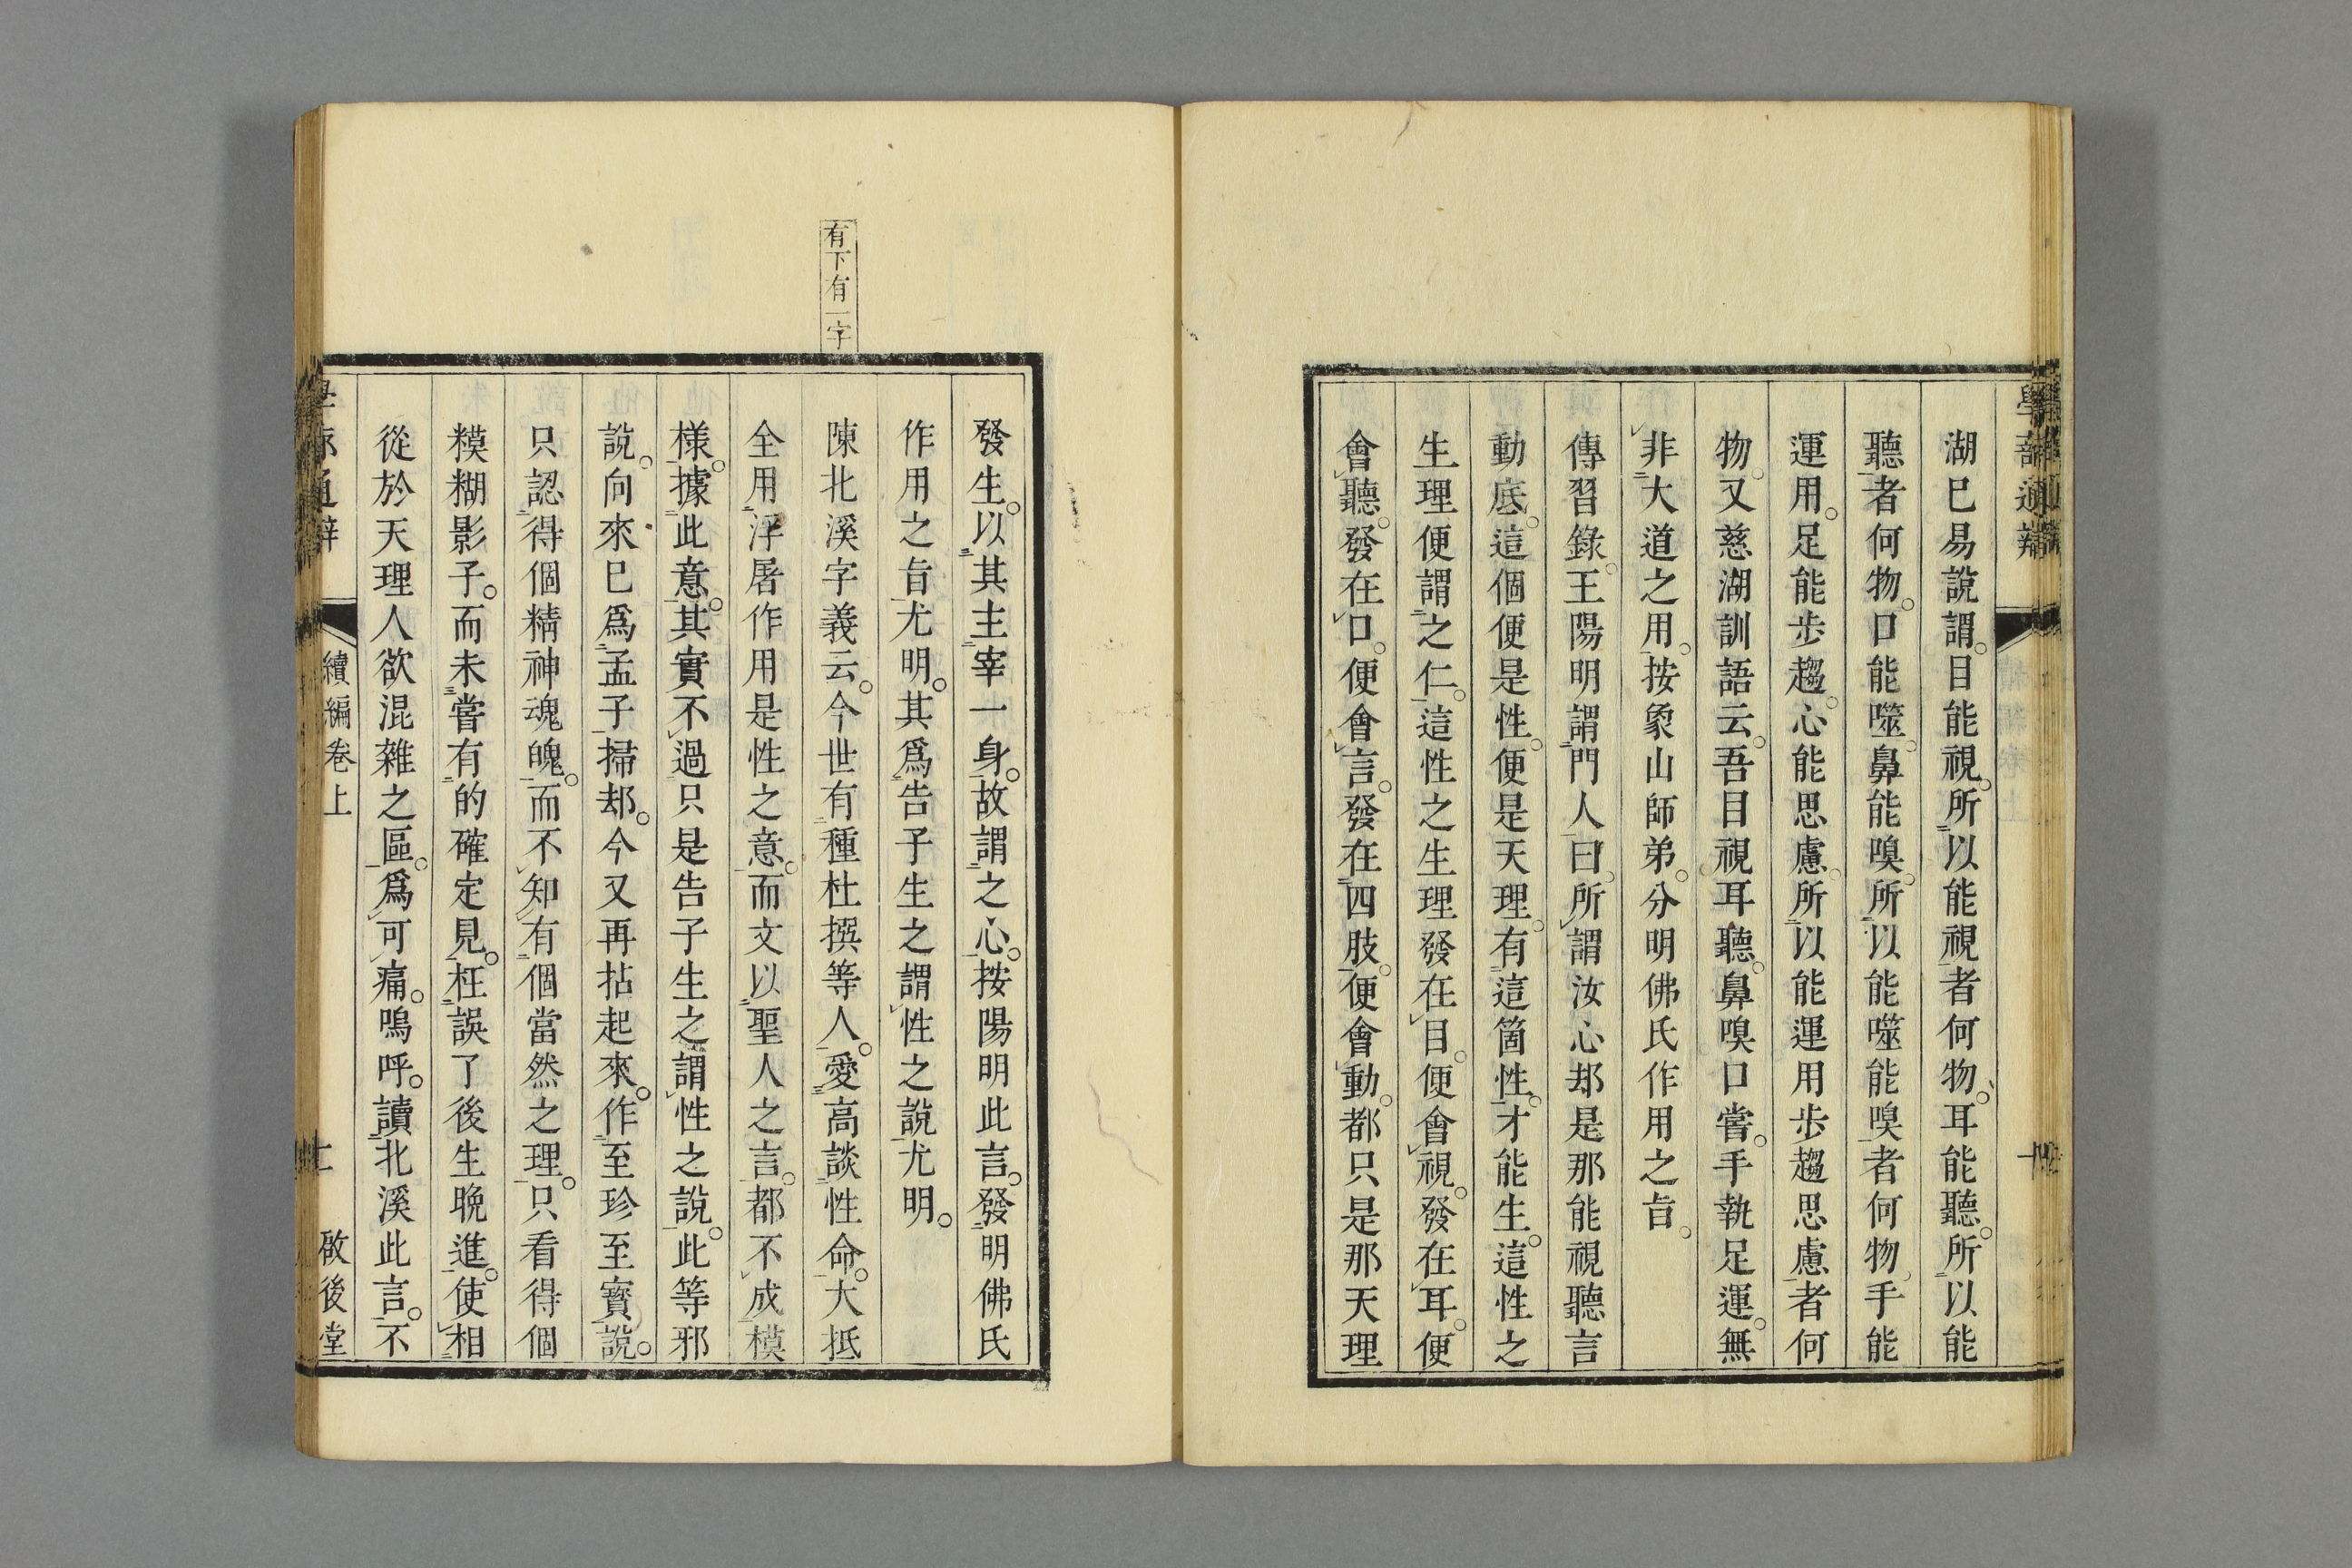 湖已易說謂。目能視。所以能視者何物。耳能聽。所以能
聽者何物。口能噬。鼻能嗅。所以能噬能嗅者何物。手能
運用。足能步趨。心能思慮。所以能運用步趨思慮者何
物。又慈湖訓語云。吾目視耳聽。鼻嗅口嘗。手執足運。無
非大道之用。按象山師弟。分明佛氏作用之旨。
傳習錄。王陽明謂門人曰。所謂汝心却是那能視聽言
動底。這個便是性。便是天理。有這箇性。才能生。這性之
生理便謂之仁。這性之生理發在目。便會視。發在耳。便
會聽。發在口。便會言。發在四肢。便會動。都只是那天理
發生。以其主宰一身。故謂之心。按陽明此言。發明佛氏
作用之旨尤明。其爲告子生之謂性之說尤明。
有下有一字
陳北溪字義云。今世有種杜撰等人。愛高談性命。大抵
全用浮屠作用是性之意。而文以聖人之言。都不成模
樣。據此意。其實不過只是告子生之謂性之說。此等邪
說。向來已爲孟子掃却。今又再拈起來。作至珍至寶說。
只認得個精神魂魄。而不知有個當然之理。只看得個
糢糊影子。而未嘗有的確定見。枉誤了後生晚進。使相
從於天理人欲混雜之區。爲可痛。嗚呼。讀北溪此言。不
續編卷上
啟後堂